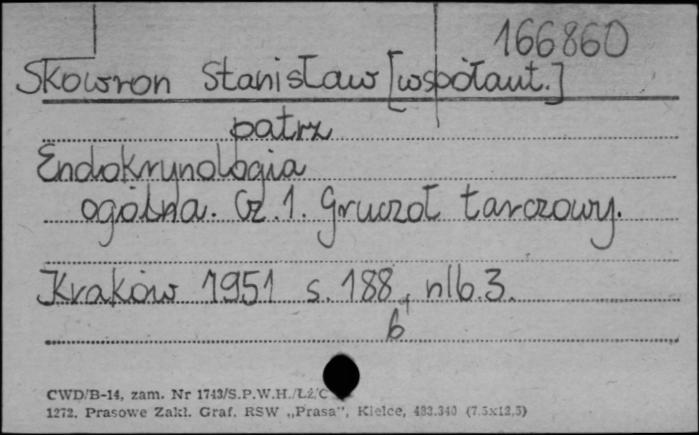 166860
Skowron Stanisław [współaut.]
patrz
Endokrynologia
ogólna. Cz. 1. Gruczoł tarczowy.
Kraków 1951 s. 188, nlb. 3.
b
CWD/B-14, zam. Nr 1743/S.P.W.H./Łż/C
1272. Prasowe Zakł. Graf. RSW „Prasa", Kielce, 483.340 (7.5x12,5)